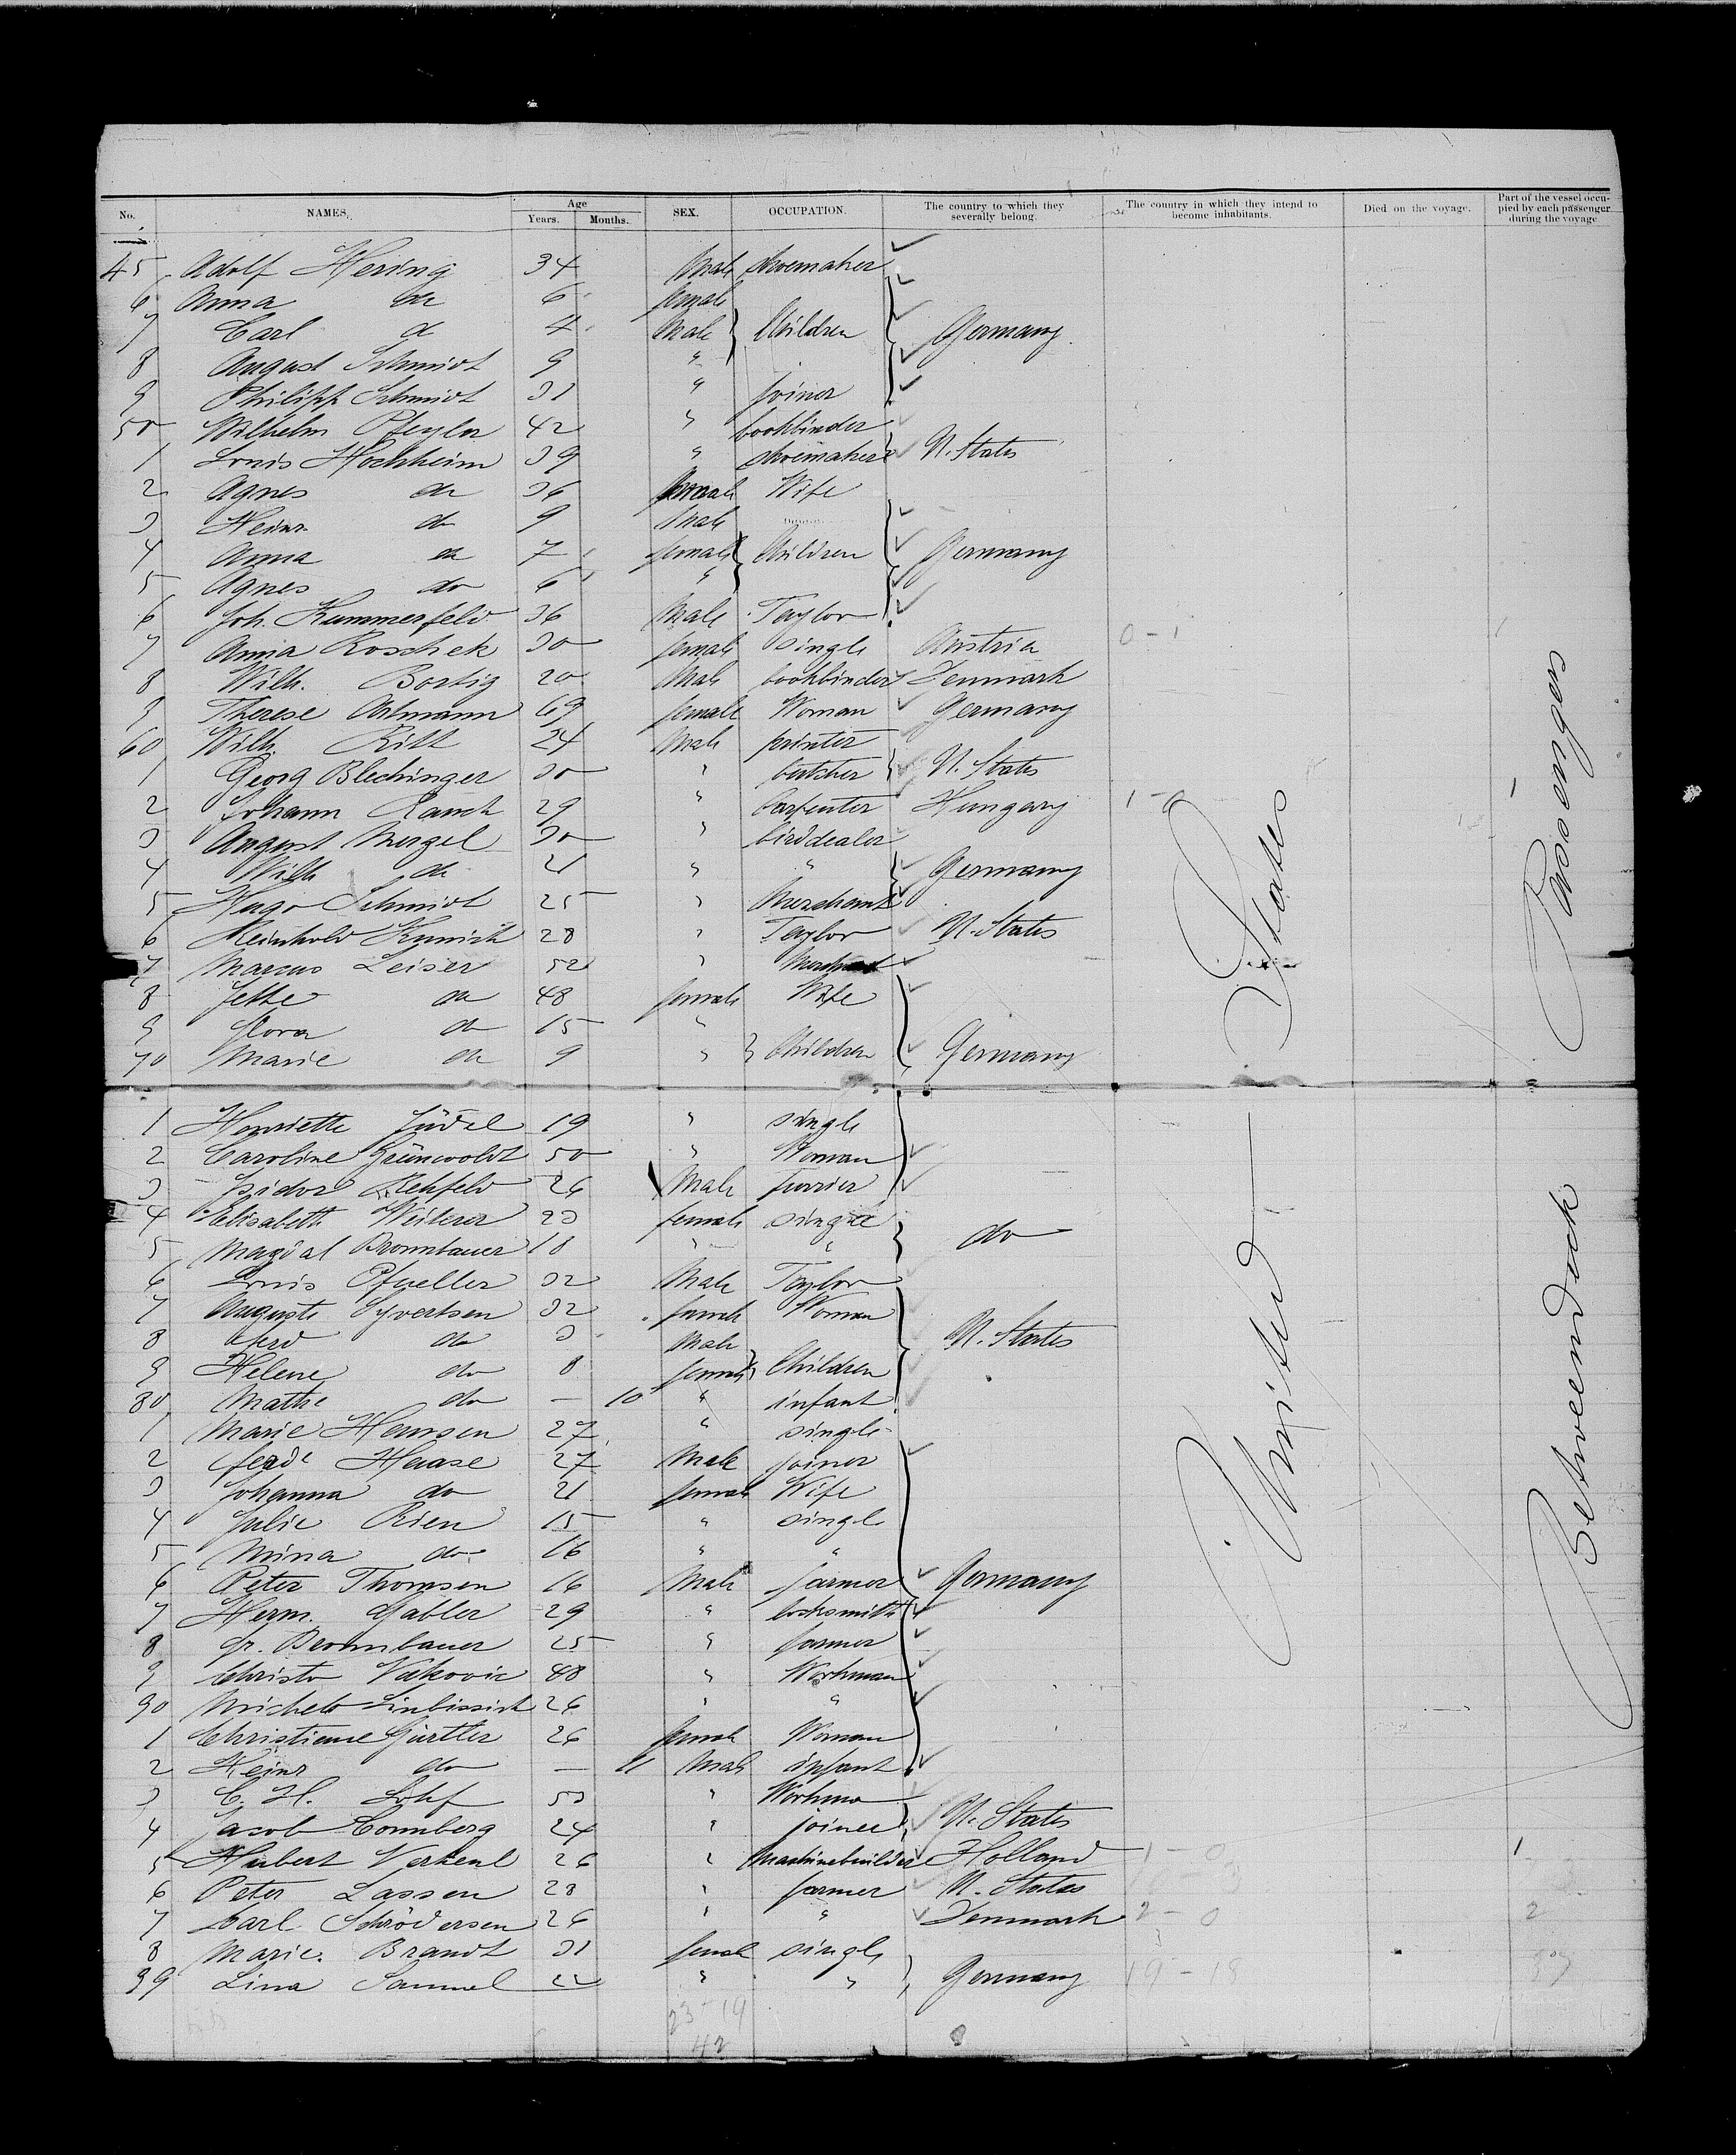 No. NAMES. Age Years. Months. SEX. OCCUPATION. The country to which they severally belong. The country in which they intend to become inhabitants. Died on the voyage. Part of the vessel occupied by each passenger during the voyage.
45 Adolf Hering 34 Male shoemaker
6 Anna do 6 female
7 Carl do 4 Male Children Germany
8 August Schmidt 9 "
9 Philipp Schmidt 31 " joiner
50 Wilhelm 42 " bookbinder
1 Louis Hochheim 39 " shoemaker U. States
2 Agnes do 36 female Wife
3 Heinr. do 9 Male
4 Anna do 7 female Children Germany
5 Agnes do 6 "
6 Joh. Kummerfeld 36 Male Taylor
7 Anna Roschek 30 female single Austria 0-1
8 Wilh. Bortig 20 Male bookbinder Denmark
9 Therese Ortmann 69 female Woman Germany
60 Wilh. Kitt 24 Male printer
1 Georg Blechinger 30 " butcher U. States
2 Johann Rauch 29 " Carpenter Hungary 1-0
3 August Mergel 30 " birddealer
4 Wilh do 21 " " Germany
5 Hugo Schmidt 25 " Merchant
6 28 " Taylor U. States
7 Marcus Leiser 52 " Merchant
8 Jette do 48 female Wife
9 Flora do 15 "
70 Marie do 9 " Children Germany
1 Henriette Jüdel 19 " single
2 Caroline Grünwoldt 50 " Woman
3 Isidor Rehfeld 26 Male furrier
4 Elisabeth Weiterer 23 female single
5 Magdal Bronnbauer 18 " " do
6 Louis Pfueller 32 Male Taylor
7 Auguste Syvertsen 32 female Woman
8 Ferd do 3 Male U. States
9 Helene do 8 female Children
80 Mathe do — 10 " infant
1 Marie Hansen 27 " single
2 Ferde Haase 27 Male joiner
3 Johanna do 21 female Wife
4 Julie Rien 15 " single
5 Mina do 16 " "
6 Peter Thomsen 16 Male farmer Germany
7 Herm. Gabler 29 " locksmith
8 Fr. Bronnbauer 25 " farmer
9 Christo Vukovic 48 " Workman
90 26 " "
1 Christiane Gürtler 26 female Woman
2 Heinr do — 11 Male infant
3 C. H. 53 " Workma
4 Jacob Cronberg 24 " joiner U. States
5 Hubert 26 " Machinebuilder Holland 1-0 1
6 Peter Lassen 28 " farmer U. States
7 Carl Schrödersen 26 " " Denmark 2-0 2
8 Marie Brandt 31 female single
99 Lina Samuel 22 " " Germany 19-18 37
23-19
42
United States
Betweendeck Passengers